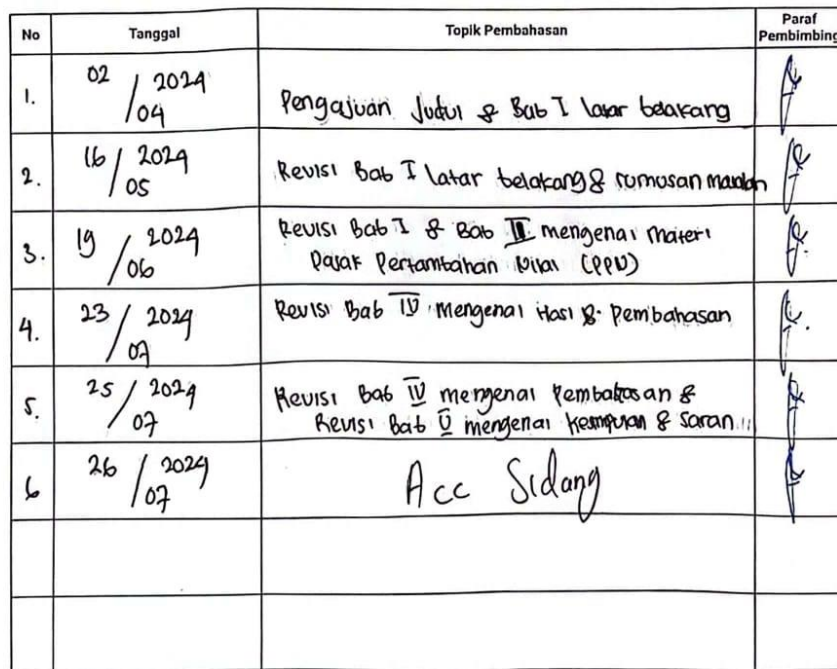 No Tanggal Topik Pembahasan Paraf
Pembimbing
1. 02 / 2024
04 Pengajuan Judul & Bab I latar belakang
2. 16 / 2024
05 Revisi Bab I latar belakang & rumusan masalah
3. 19 / 2024
06 Revisi Bab I & Bab II mengenai materi
Pajak Pertambahan Nilai (PPN)
4. 23 / 2024
07 Revisi Bab IV mengenai Hasi & Pembahasan
5. 25 / 2024
07 Revisi Bab IV mengenai Pembahasan &
Revisi Bab V mengenai Kesimpulan & Saran
6 26 / 2024
07 Acc Sidang